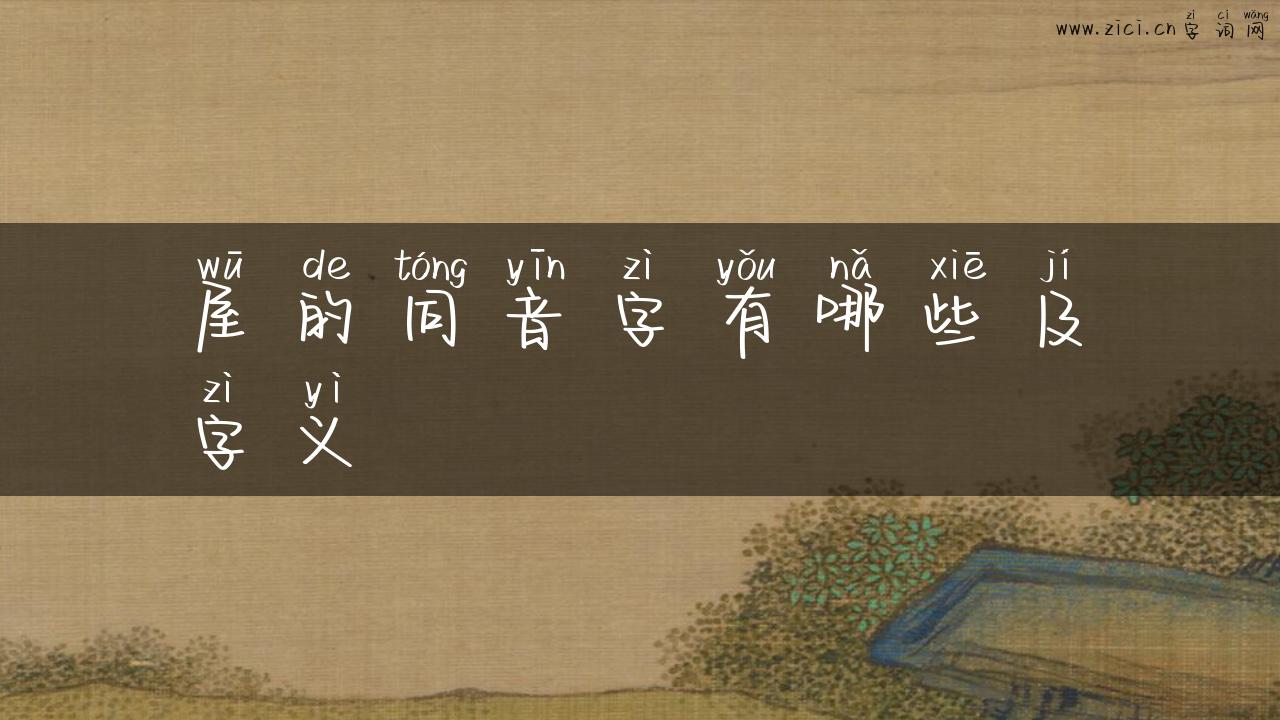 zì cí wǎng
www.zici.cn 字词网
wū de tóng yīn zì yǒu nǎ xiē jí
屋的同音字有哪些及
zì yì
字义